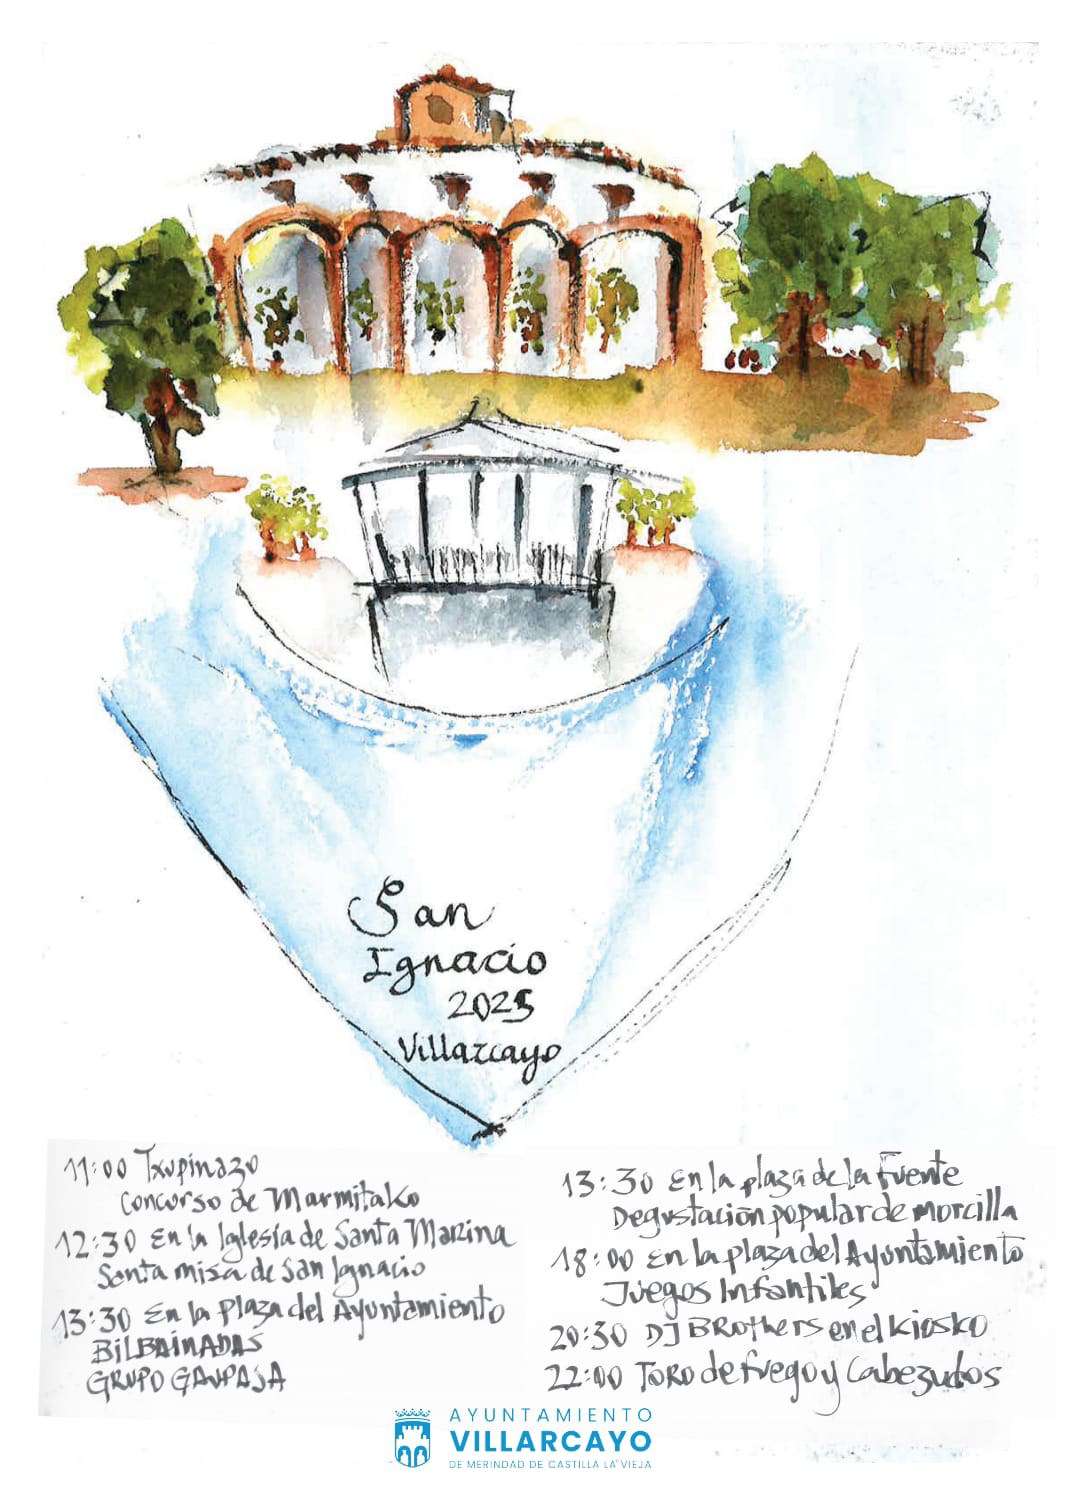 San
Ignacio
2025
Villarcayo
11:00 Txupinazo
Concurso de Marmitako
12:30 En la Iglesía de Santa Marina
Santa misa de San Ignacio
13:30 En la Plaza del Ayuntamiento
BilBAINADAS
GRUPO
13:30 En la plaza de la Fuente
Degustación popular de morcilla
18:00 En la plaza del Ayuntamiento
Juegos Infantiles
20:30 DJ BRothers en el kiosko
22:00 Toro de fuego y Cabezudos
AYUNTAMIENTO
VILLARCAYO
DE MERINDAD DE CASTILLA LA VIEJA